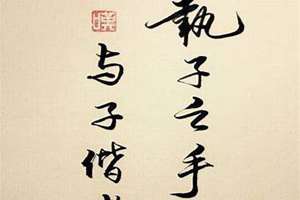 執子之手
与子偕